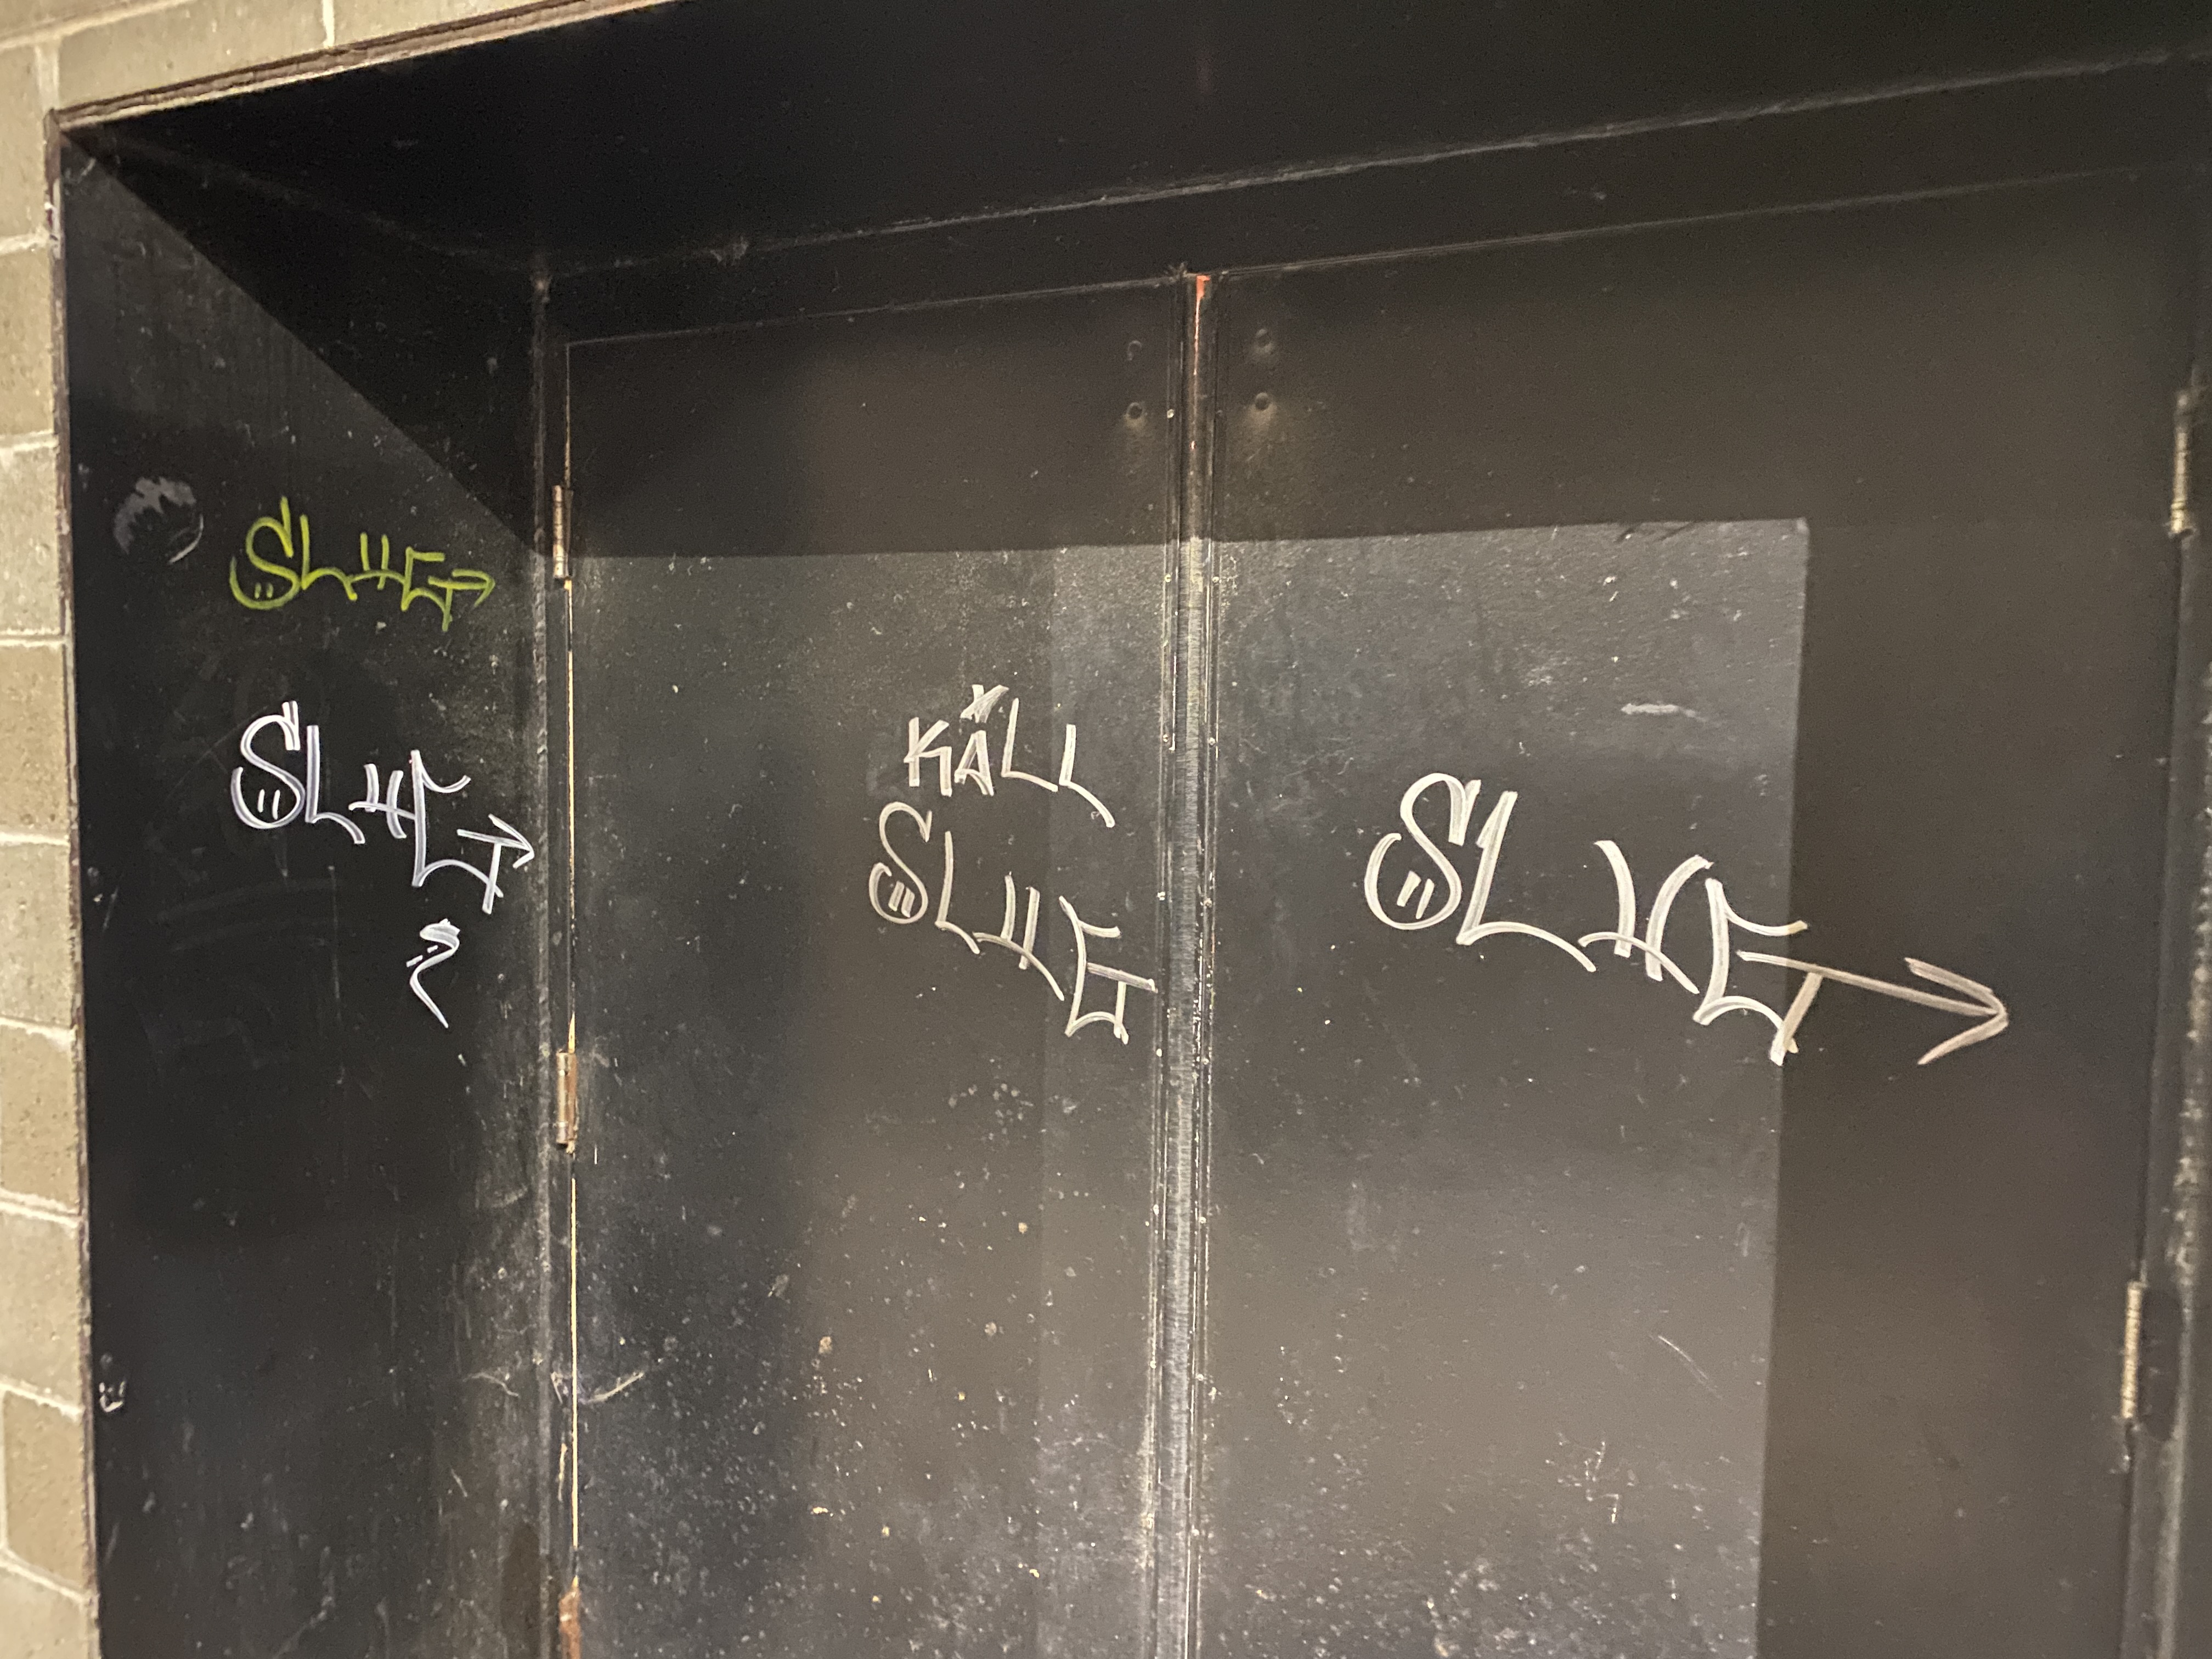 SLUG
SLUG
KALL
SLUG
SLUG